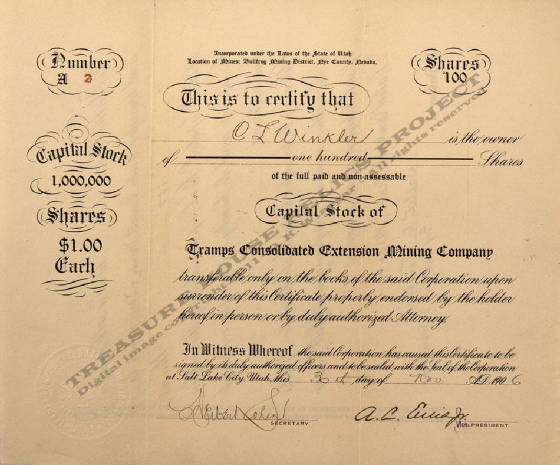 Incorporated under the Laws of the State of Utah
Location of Mines: Bullfrog Mining District, Nye County, Nevada.
Number
A 2
Shares
100
This is to certify that
C L Winkler is the owner
of one hundred Shares
of the full paid and non-assessable
Capital Stock of
Tramps Consolidated Extension Mining Company
transferable only on the books of the said Corporation upon
surrender of this Certificate properly endorsed by the holder
hereof in person or by duly authorized Attorney.
In Witness Whereof, the said Corporation has caused this Certificate to be
signed by its duly authorized officers and to be sealed with the seal of the Corporation
at Salt Lake City, Utah, this 3d day of Nov A.D. 1906
Herbert Cohen
SECRETARY
A. C. Ellis Jr.
Vice PRESIDENT
Capital Stock
1,000,000
Shares
$1.00
Each
TREASURE HOUSE RELICS PROJECT
Digital image copyright
All rights reserved